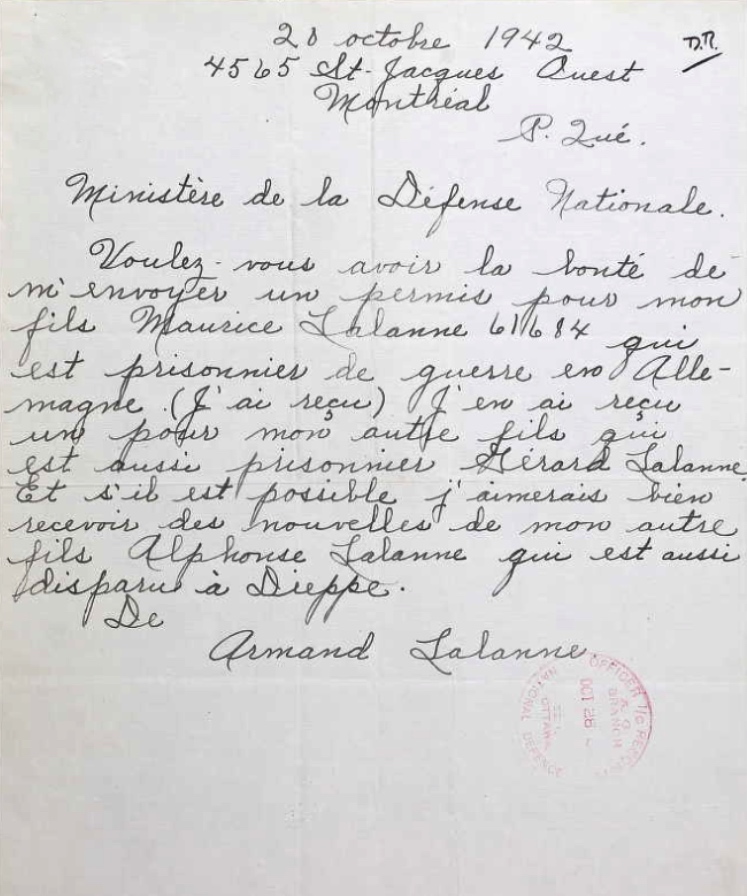 20 octobre 1942
D.R.
4565 St-Jacques Ouest
Montréal
P. Qué.
Ministère de la Défense Nationale.
Voulez-vous avoir la bonté de
m'envoyer un permis pour mon
fils Maurice Lalanne 61684 qui
est prisonnier de guerre en Alle-
magne. (J'ai reçu) J'en ai reçu
un pour mon autre fils qui
est aussi prisonnier Gérard Lalanne.
Et s'il est possible j'aimerais bien
recevoir des nouvelles de mon autre
fils Alphonse Lalanne qui est aussi
disparu à Dieppe.
De
Armand Lalanne.
OFFICER I/C
BRANCH
OCT 28
OTTAWA
NATIONAL DEFENCE